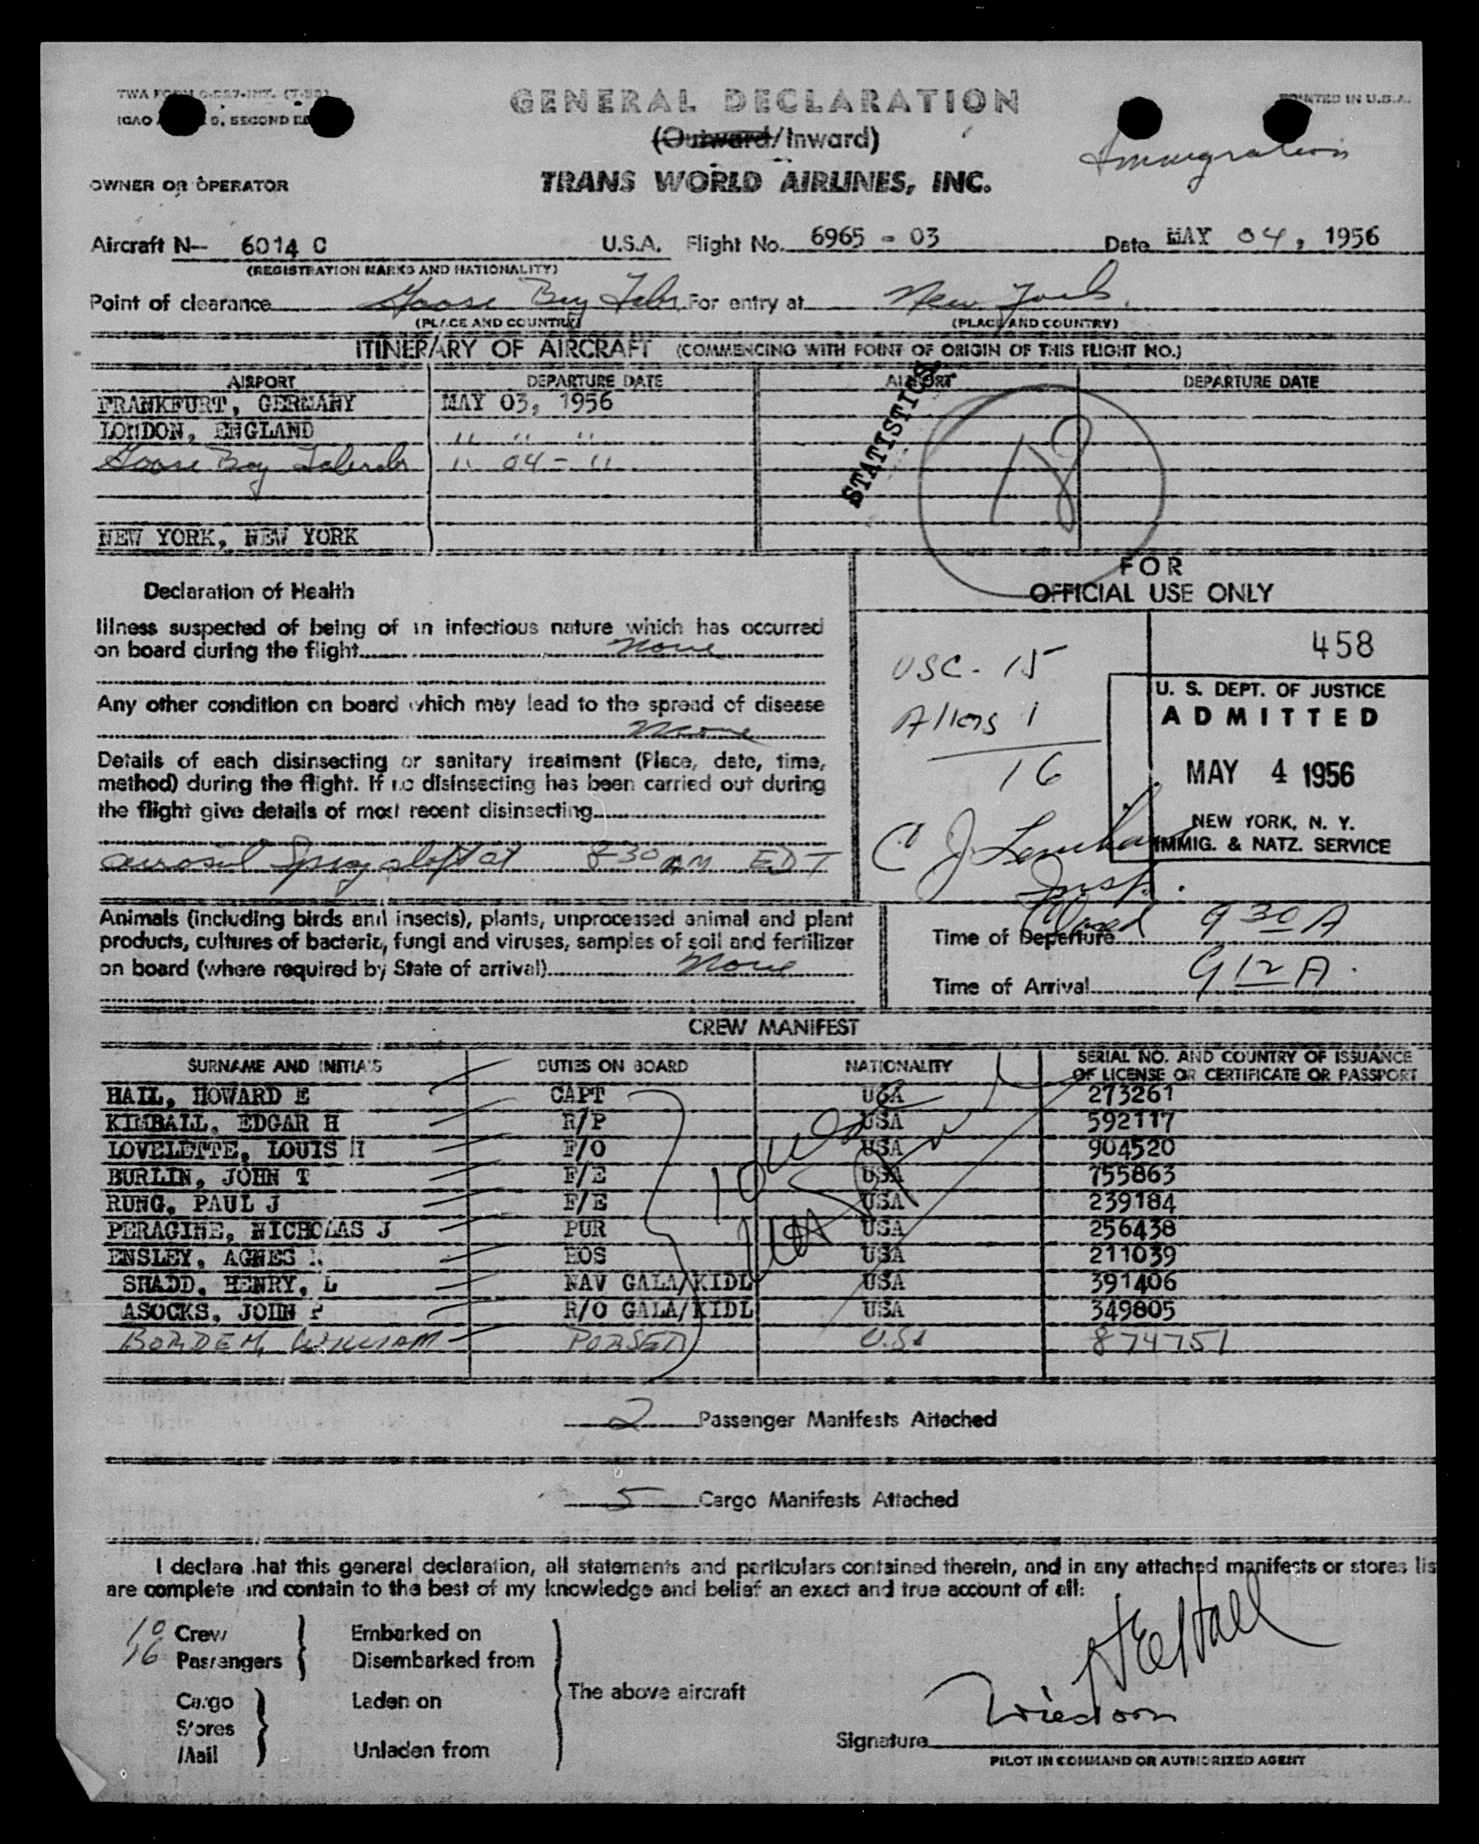 GENERAL DECLARATION
(Outward/Inward)
PRINTED IN U.S.A.
Immigration
OWNER OR OPERATOR
TRANS WORLD AIRLINES, INC.
Aircraft N— 6014 C U.S.A. Flight No. 6965 - 03 Date MAY 04, 1956
(REGISTRATION MARKS AND NATIONALITY)
Point of clearance Goose Bay Labr. For entry at New York.
(PLACE AND COUNTRY) (PLACE AND COUNTRY)
ITINERARY OF AIRCRAFT (COMMENCING WITH POINT OF ORIGIN OF THIS FLIGHT NO.)
AIRPORT DEPARTURE DATE AIRPORT DEPARTURE DATE
FRANKFURT, GERMANY MAY 03, 1956
LONDON, ENGLAND " " "
Goose Bay Labrador " 04 - "
STATISTICS
NEW YORK, NEW YORK
FOR
OFFICIAL USE ONLY
Declaration of Health
Illness suspected of being of an infectious nature which has occurred
on board during the flight None
Any other condition on board which may lead to the spread of disease
None
Details of each disinsecting or sanitary treatment (Place, date, time,
method) during the flight. If no disinsecting has been carried out during
the flight give details of most recent disinsecting
aerosol Spray 830 AM EDT
USC - 15
Aliens 1
16
458
U. S. DEPT. OF JUSTICE
ADMITTED
MAY 4 1956
NEW YORK, N. Y.
IMMIG. & NATZ. SERVICE
C J Lenihan
Insp.
Animals (including birds and insects), plants, unprocessed animal and plant
products, cultures of bacteria, fungi and viruses, samples of soil and fertilizer
on board (where required by State of arrival) None
Closed
Time of Departure 9 30 A
Time of Arrival 9 12 A.
CREW MANIFEST
SURNAME AND INITIALS DUTIES ON BOARD NATIONALITY SERIAL NO. AND COUNTRY OF ISSUANCE
OF LICENSE OR CERTIFICATE OR PASSPORT
HALL, HOWARD E CAPT USA 273261
KIMBALL, EDGAR H R/P USA 592117
LOVELETTE, LOUIS H F/O USA 904520
BURLIN, JOHN T F/E USA 755863
RUNG, PAUL J F/E USA 239184
PERAGINE, NICHOLAS J PUR USA 256438
ENSLEY, AGNES HOS USA 211039
SHADD, HENRY, L NAV GALA/KIDL USA 391406
ASOCKS, JOHN P R/O GALA/KIDL USA 349805
BORDEN, WILLIAM PURSER U.SA 874751
2 Passenger Manifests Attached
5 Cargo Manifests Attached
I declare that this general declaration, all statements and particulars contained therein, and in any attached manifests or stores lis
are complete and contain to the best of my knowledge and belief an exact and true account of all:
10 Crew Embarked on
16 Passengers Disembarked from
Cargo Laden on The above aircraft
Stores
Mail Unladen from
HE Hall
Signature
PILOT IN COMMAND OR AUTHORIZED AGENT